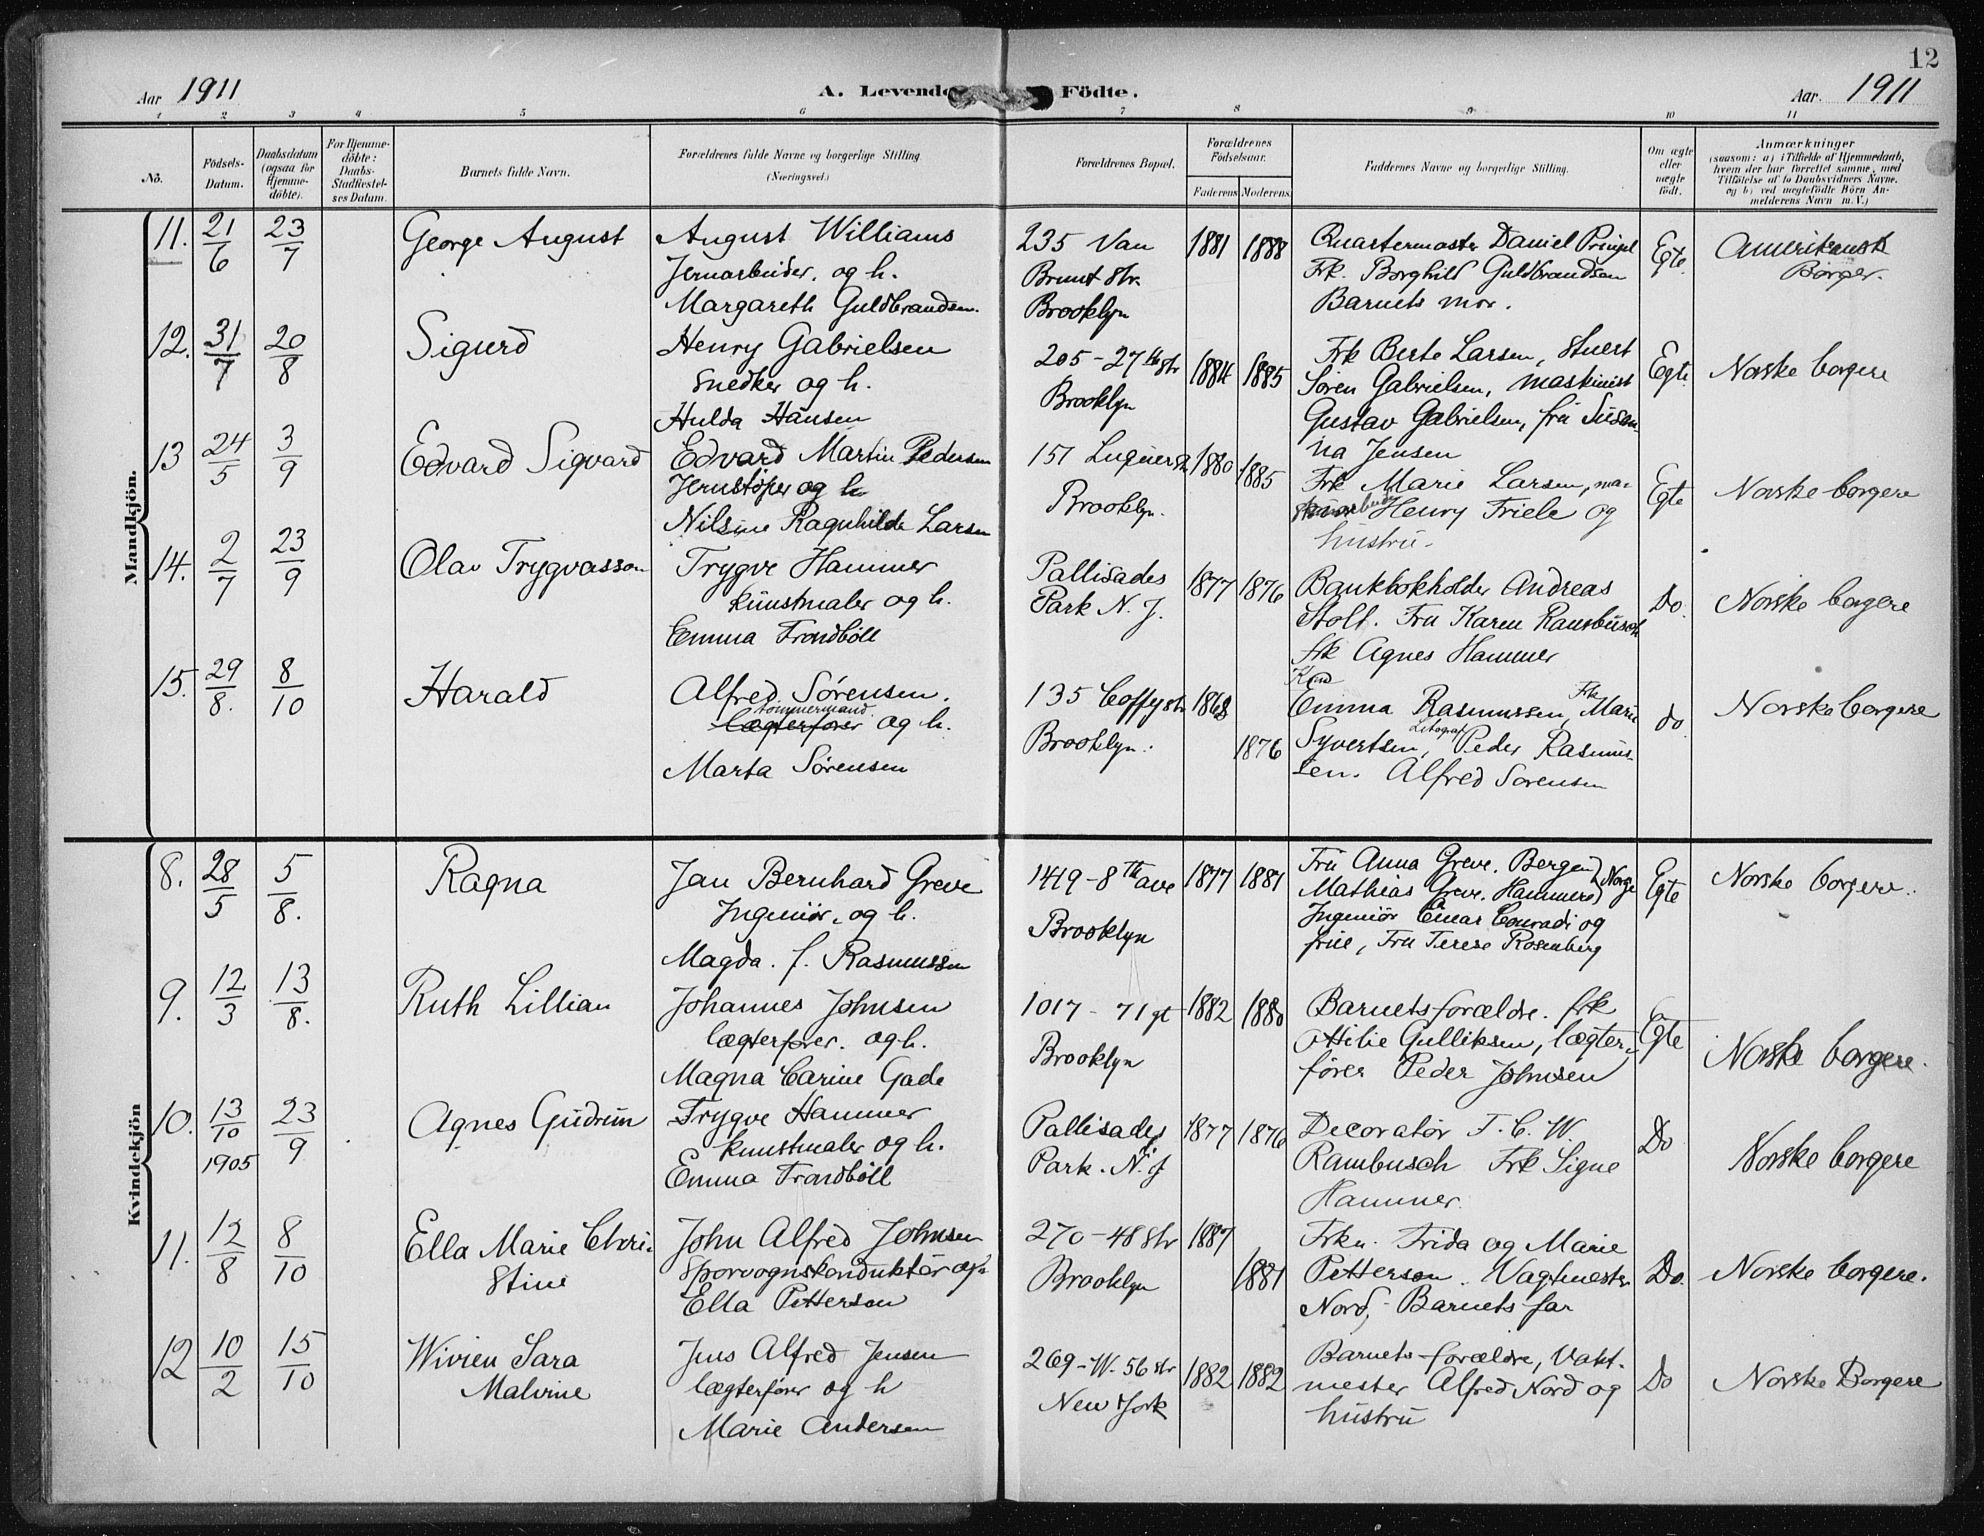 12
Aar 1911
A. Levende Födte.
Aar. 1911
1 2 3 4 5 6 7 8 9 10 11
No.
Födsels-
Datum.
Daabsdatum
(ogsaa for
Hjemme-
döbte).
For Hjemme-
döbte:
Daabs-
Stadfæstel-
ses Datum.
Barnets fulde Navn.
Forældrenes fulde Navne og borgerlige Stilling.
(Næringsvei.)
Forældrenes Bopæl.
Forældrenes
Födselsaar.
Faderens Moderens
Faddernes Navne og borgerlige Stilling.
Om ægte
eller
uægte
födt.
Anmærkninger
(saasom: a) i Tilfælde af Hjemmedaab,
hvem der har forrettet samme, med
Tilföielse af to Daabsvidners Navne.
og b) ved uægtefödte Börn An-
melderens Navn m. V.)
Mandkjön.
11.
21/6
23/7
George August
August Williams
Jernarbeider. og h.
Margareth Guldbrandsen.
235 Van
Brunt Str.
Brooklyn
1881
1888
Quartermaster Daniel Pringel
Frk. Borghild Guldbrandsen
Barnets mor.
Egte.
Amerikansk
Borger.
12.
31/7
20/8
Sigurd
Henry Gabrielsen
Snedker og h.
Hulda Hansen
205 - 27th str
Brooklyn
1884
1885
Frk Berte Larsen, Stuert
Søren Gabrielsen, maskinist
Gustav Gabrielsen, fru Susan-
na Jensen
Egte.
Norske borgere
13
24/5
3/9
Edvard Sigvard
Edvard Martin Pedersen
Jernstøper og h
Nilsine Ragnhilde Larsen
151 Luquer St
Brooklyn.
1880
1885
Frk Marie Larsen, ma-
Henry Friele og
hustru.
Egte
Norske borgere
14.
2/7
23/9
Olav Trygvasson
Trygve Hammer
Kunstmaler og h.
Emma Trondböll
Pallisades
Park N. J.
1877
1876
Bankbokholder Andreas
Stolt. Fru Karen Rambusch
frk Agnes Hammer
Do.
Norske borgere
15.
29/8.
8/10
Harald
Alfred Sørensen.
tømmermand
lægterfører og h.
Marta Sørensen
135 Coffey str
Brooklyn.
1868
1876
Emma Rasmussen, Frk Marie
Syvertsen, Litograf Peder Rasmus-
sen. Alfred Sorensen
do.
Norske borgere
Kvindekjön
8.
28/5
5/8.
Ragna
Jan Bernhard Greve
Ingeniör. og h.
Magda. f. Rasmussen
1419 - 8th ave
Brooklyn
1877
1881
Fru Anna Greve. Bergen
Mathias Greve. Hammers Norge
Ingeniör Einar Conradi og
frue, Fru Terese Rosenberg
Egte
Norske borgere.
9.
12/3
13/8.
Ruth Lillian
Johannes Johnsen
lægterfører. og h.
Magna Carine Gade
1017 - 71 gt
Brooklyn
1882
1880
Barnets forældre. frk
Otilie Gulliksen, lægter-
fører Peder Johnsen
Egte
Norske borgere.
10.
13/10
1905
23/9
Agnes Gudrun
Trygve Hammer
Kunstmaler og h.
Emma Trondböll
Pallisades
Park. N. J
1877
1876
Decoratør F. C. W
Rambusch Frk Signe
Hammer.
Do
Norske borgere
11.
12/8
8/10
Ella Marie Chri-
stine
John Alfred Johnsen
Sporvognskonduktör og h
Ella Petterson
270 - 48 str
Brooklyn
1887
1881
Frkn. Frida og Marie
Petterson. Vagtmester
Nord, Barnets far
Do.
Norske borgere.
12
10/2
15/10
Wivien Sara
Malvine
Jens Alfred Jensen
lægterfører og h
Marie Andersen
269 - W. 56 str
New York
1882
1882
Barnets forældre, Vakt-
mester Alfred Nord og
hustru
Do
Norske Borgere